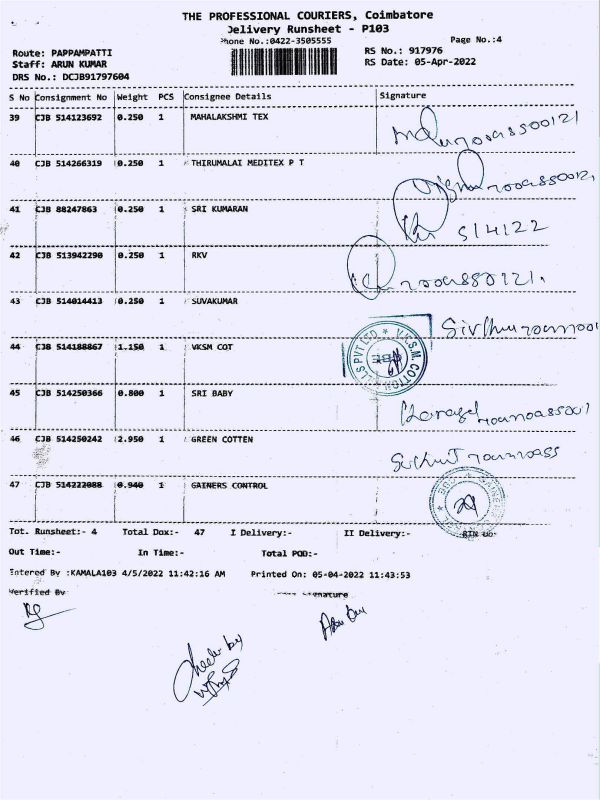 THE PROFESSIONAL COURIERS, Coimbatore
Delivery Runsheet - P103
Phone No.:0422-3505555
Page No.:4
Route: PAPPAMPATTI
RS No.: 917976
Staff: ARUN KUMAR
RS Date: 05-Apr-2022
DRS No.: DCJB91797604
S No Consignment No Weight PCS Consignee Details Signature
39 CJB 514123692 0.250 1 MAHALAKSHMI TEX
40 CJB 514266319 0.250 1 THIRUMALAI MEDITEX P T
41 CJB 88247863 0.250 1 SRI KUMARAN
5/4/22
42 CJB 513942290 0.250 1 RKV
43 CJB 514014413 0.250 1 SUVAKUMAR
44 CJB 514188867 1.150 1 VKSM COT
45 CJB 514250366 0.800 1 SRI BABY
46 CJB 514250242 2.950 1 GREEN COTTEN
47 CJB 514222088 0.940 1 GAINERS CONTROL
Tot. Runsheet:- 4 Total Dox:- 47 I Delivery:- II Delivery:-
Out Time:- In Time:- Total POD:-
Entered By :KAMALA103 4/5/2022 11:42:16 AM Printed On: 05-04-2022 11:43:53
Verified By